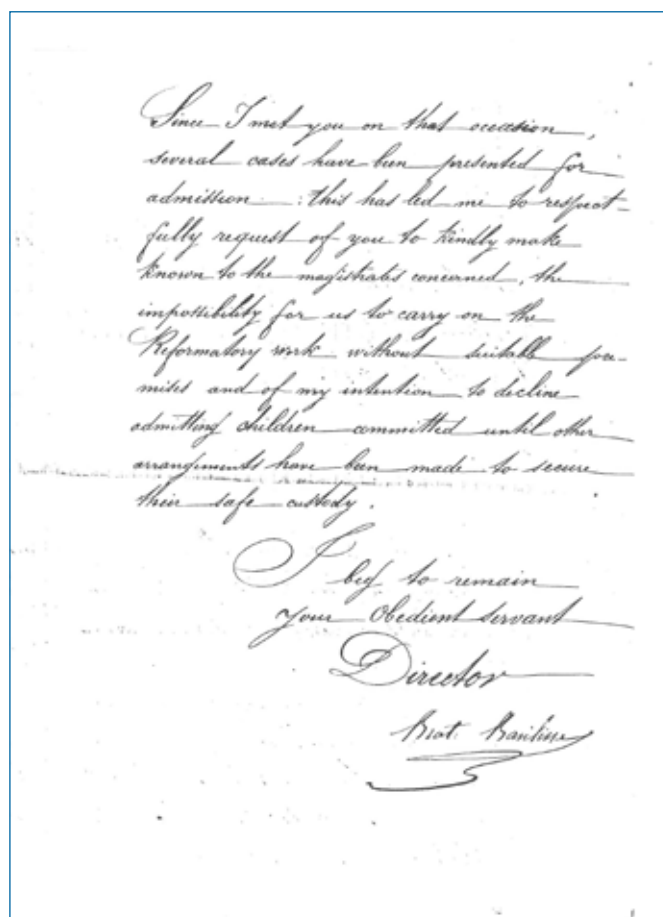 Since I met you on that occasion,
several cases have been presented for
admission : this has led me to respect-
fully request of you to kindly make
known to the magistrates concerned, the
impossibility for us to carry on the
Reformatory work without suitable pre-
mises and of my intention to decline
admitting children committed until other
arrangements have been made to secure
their safe custody.
I
beg to remain
your Obedient servant
Director